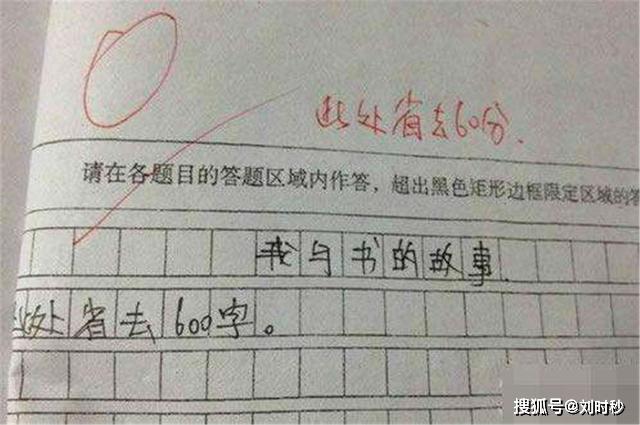 此处省去60分.
请在各题目的答题区域内作答，超出黑色矩形边框限定区域的答
我与书的故事.
此处省去600字。
搜狐号@刘时秒